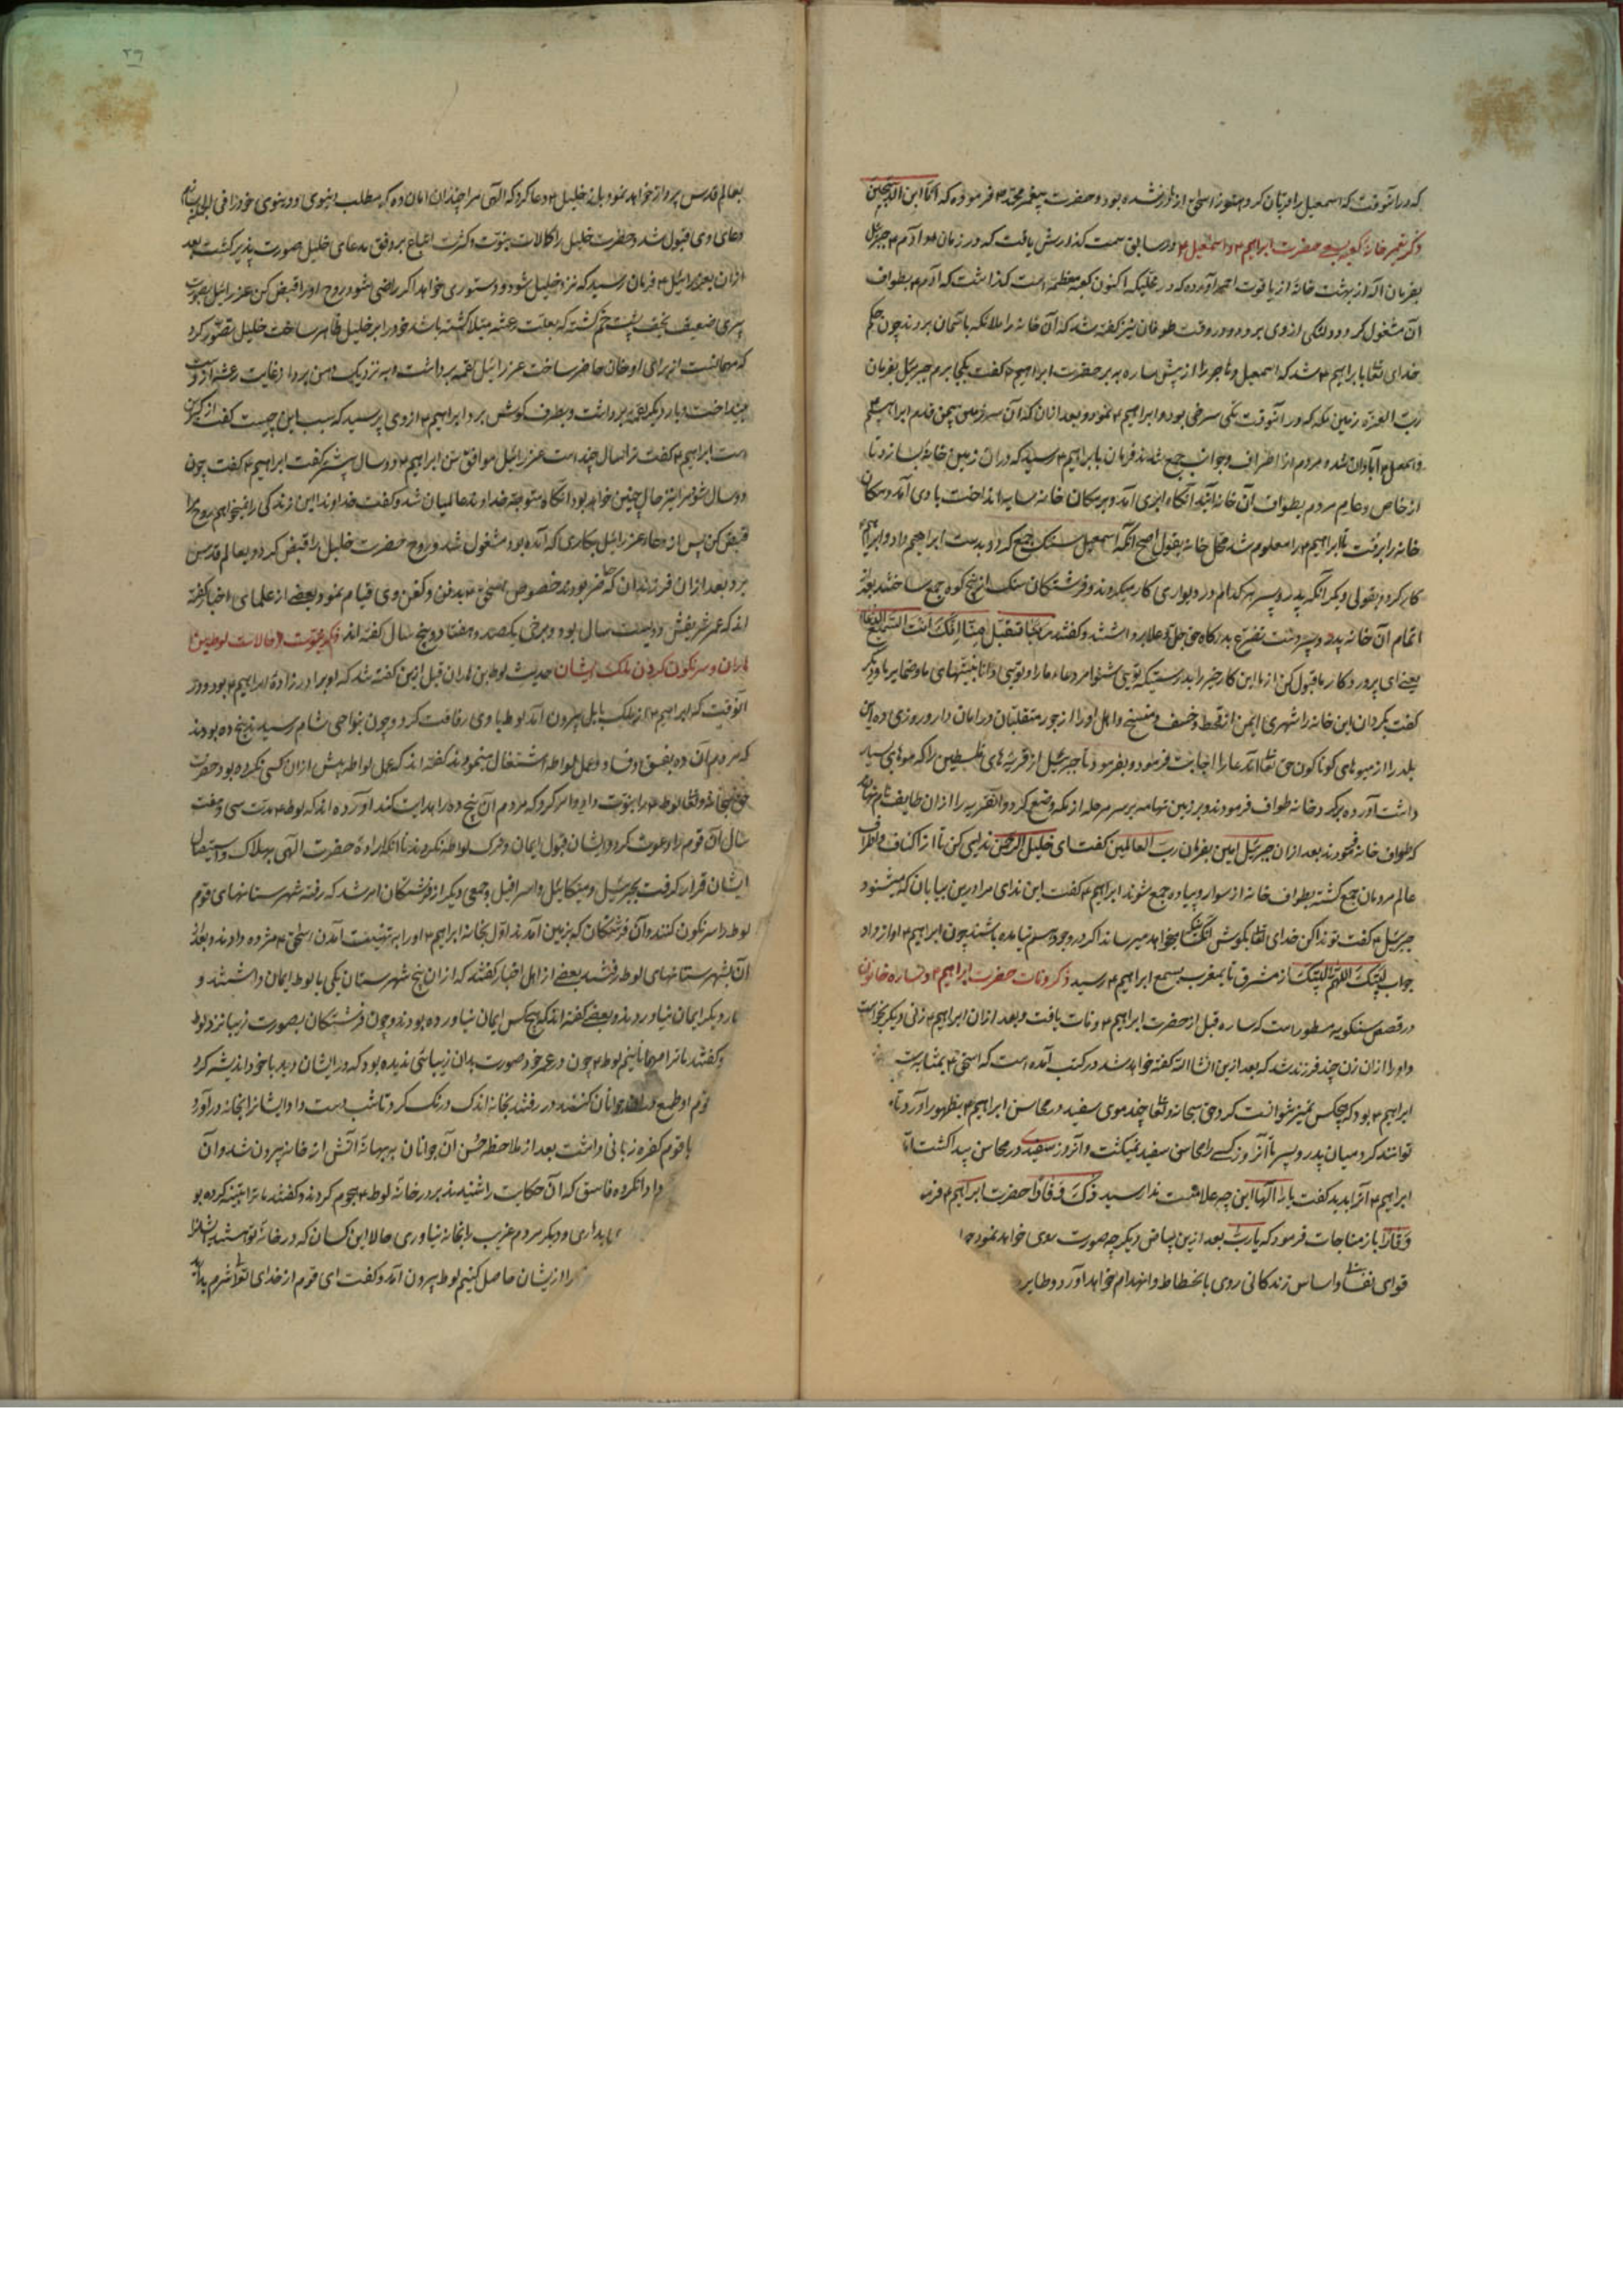 که در آنوقت که اسمعیل را قربان کرد هنوز اسحق از مادر نشده بود و حضرت پیغمبر محمد م فرموده که انا ابن الذبیحین
ذکر تعمیر خانه کعبه بسعی حضرت ابراهیم م و اسمعیل م در سابق سمت گذارش یافت که در زمان آدم م جبرئیل
بفرمان اله از بهشت خانه از یاقوت احمر آورده که در جائیکه اکنون کعبه معظمه است گذاشت که آدم م بطواف
آن مشغول کردد و دلتنکی از وی برود و در وقت طوفان نیز کفته شد که آن خانه را ملائکه باسمان بردند چون حکم
خدای تعالی بابراهیم م شد که اسمعیل و هاجر را از پیش ساره ببر حضرت ابراهیم م کفت بکجا برم جبرئیل بفرمان
رب العزة زمین مکه که در آنوقت تلی سرخی بود بابراهیم م نمود و بعد از آن که آن سرزمین بیمن قدم ابراهیم م
و اسمعیل م آبادان شده مردم از اطراف و جوانب جمع شدند فرمان بابراهیم م رسید که در آن زمین خانه بسازد تا
از خاص و عام مردم بطواف آن خانه آیند آنکاه ابری آمد و بر مکان خانه سایه انداخت بادی آمد و مکان
خانه را برفت تا ابراهیم م را معلوم شد محل خانه بقول اصح آنکه اسمعیل سنک جمع کرد و بدست ابراهیم داد و ابراهیم م
کار کرد و بقولی دیکر آنکه پدر و پسر هر کدام در دیواری کار میکردند و فرشتکان سنک از پنج کوه جمع ساختند بعد از
اتمام آن خانه پدر و پسر دست تضرع بدرکاه حق جل و علا برداشتند و کفتند ربنا تقبل منا انک انت السمیع العلیم
یعنی ای پرورد کار ما قبول کن از ما این کار خیر را بدرستیکه تویی شنوا مر دعاء ما را و تویی دانا بنیتهای ما و ضمایر ما و دیکر
کفت بکردان این خانه را شهری ایمن از قحط و خسف و مسخ و اهل او را از جور متقلبان در امان دار و روزی ده این
بلد را از میوهای کوناکون حق تعالی آن دعا را اجابت فرمود و بفرمود تا جبرئیل از قریه های فلسطین را که میوهای بسیار
داشت آورده بر کرد خانه طواف فرمودند و بر زمین تهامه بر سر مرحله از مکه وضع کرد و آنقریه را از آن طایف نام نهاد
که طواف خانه نمودند بعد از آن جبرئیل امین بفرمان رب العالمین کفت ای خلیل الرحمن ندایی کن تا از اکناف و اطراف
عالم مردمان جمع کشته بطواف خانه از سوار و پیاده جمع شوند ابراهیم م کفت این ندای مرا در این بیابان که میشنود
جبرئیل م کفت تو ندا کن خدای تعالی بکوش آنکس که بخواهد میرساند اکر در وجود هم نیامده باشند چون ابراهیم م آواز داد
جواب لبیک اللهم لبیک از مشرق تا بمغرب بسمع ابراهیم م رسید ذکر وفات حضرت ابراهیم م و ساره خاتون
در قصص مسطور است که ساره قبل از حضرت ابراهیم م وفات یافت و بعد از آن ابراهیم م زنی دیکر بخواست
و او را از آن زن چند فرزند شد که بعد ازین انشا الله کفته خواهد شد در کتب آمده است که اسحق م بمثابه
ابراهیم م بود که هیچکس تمیز نتوانست کرد حق سبحانه و تعالی چند موی سفید در محاسن ابراهیم م بظهور آورد تا
توانند کرد میان پدر و پسر تا آنروز کسی را محاسن سفید نمیکشت و آنروز سفیدی در محاسن پیدا کشت
ابراهیم م آنرا بدید کفت بار الها این چه علامتست ندا رسید ذلک وقارا حضرت ابراهیم م
وقارا باز مناجات فرمود که یا رب بعد ازین بیاض دیکر چه صورت روی خواهد نمود
قوای نفسانی و اساس زندکانی روی بانحطاط و انهدام خواهد آورد و طایر
۲۶
بعالم قدس پرواز خواهد نمود باز خلیل م دعا کرد که الهی مرا چندان امان ده که مطلب اخروی و دنیوی خود را
دعای وی قبول شد و حضرت خلیل را کمالات نبوت و کثرت اتباع بر وفق مدعای خلیل صورت پذیر کشت بعد
از آن بعزرائیل م فرمان رسید که نزد خلیل شود و دستوری خواهد اکر راضی شود روح او را قبض کن عزرائیل بصورت
پیری ضعیف نحیف پشت خم کشته که بعلت رعشه مبتلا کشته باشد خود را بر خلیل ظاهر ساخت خلیل تصور کرد
که مهمانست از برای او خوان حاضر ساخت عزرائیل لقمه برداشت و به نزدیک دهن برد از غایت رعشه از دست
بینداخت و بار دیکر لقمه برداشت و بطرف کوش برد ابراهیم م از وی پرسید که سبب این چیست کفت از کبر سن
است ابراهیم م کفت ترا سال چند است عزرائیل موافق سن ابراهیم م دو سال پیشتر کفت ابراهیم م کفت چون
دو سال شود مرا نیز حال چنین خواهد بود آنکاه متوجه خداوند عالمیان شد و کفت خداوندا این زندکی را نمیخواهم روح مرا
قبض کن پس از دعا عزرائیل بکاری که آمده بود مشغول شد و روح حضرت خلیل را قبض کرد و بعالم قدس
برد بعد از آن فرزندان که حاضر بودند خصوص اسحق م بدفن و کفن وی قیام نمود و بعضی از علمای اخبار کفته
اند که عمر شریفش دویست سال بود و برخی یکصد و هفتاد و پنج سال کفته اند ذکر حالات لوط بن
هاران و سرنکون کردن ملک ایشان حدیث لوط بن هاران قبل ازین کفته شد که او برادر زاده ابراهیم م بود و در
آنوقت که ابراهیم م از ملک بابل بیرون آمد لوط با وی رفاقت کرد و چون بنواحی شام رسیدند پنج ده بودند
که مردم آن ده بفسق و فساد و عمل لواطه اشتغال مینمودند کفته اند که عمل لواطه پیش از آن کسی نکرده بود حضرت
حق سبحانه و تعالی لوط م را نبوت داد و امر کرد که مردم آن پنج ده را هدایت کند آورده اند که لوط م مدت سی و هفت
سال آن قوم را دعوت کرد و ایشان قبول ایمان و ترک لواطه نکردند تا آنکه اراده حضرت الهی بهلاک و استیصال
ایشان قرار کرفت بجبرئیل و میکائیل و اسرافیل و جمعی دیکر از فرشتکان امر شد که رفته شهرستانهای قوم
لوط را سرنکون کنند و آن فرشتکان که بزمین آمدند اول بخانه ابراهیم م او را به تهنیت آمدن اسحق م مژده دادند و بعد از
آن بشهرستانهای لوط رفتند بعضی از اهل اخبار کفتند که از آن پنج شهرستان یکی با لوط ایمان داشتند و
چهار دیکر ایمان نیاوردند و بعضی کفته اند که هیچکس ایمان نیاورده بودند و چون فرشتکان بصورت زیبا نزد لوط
و کفتند ما ترا مهمانانیم لوط م چون در عمر خود صورت بدان زیبائی ندیده بود که در ایشان دید با خود اندیشه کرد
قوم او طمع در جوانان کنند در رفتن بخانه اندک درنک کرد تا شب دست داد ایشانرا بخانه درآورد
با قوم کفره زبانی داشت بعد از ملاحظه حسن آن جوانان به بهانه آتش از خانه بیرون شد و آن
کروه فاسق که آن حکایت را شنیدند بر در خانه لوط م هجوم کردند و کفتند ما ترا تنبیه کرده بو
و دیکر مردم غریب را بخانه نیاوری حالا این کسان که در خانه تو هستند
را ازیشان حاصل کنیم لوط بیرون آمد و کفت ای قوم از خدای تعالی شرم بدارید